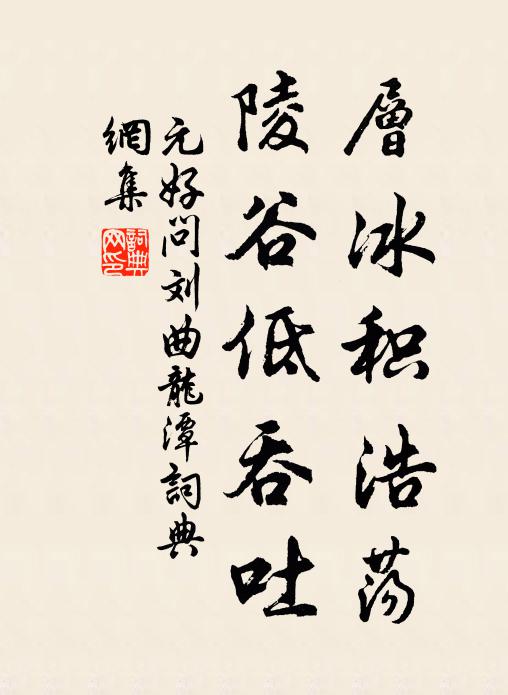 層冰积浩荡
陵谷低吞吐
元好问刘曲龍潭詞典
網集
詞典
网印